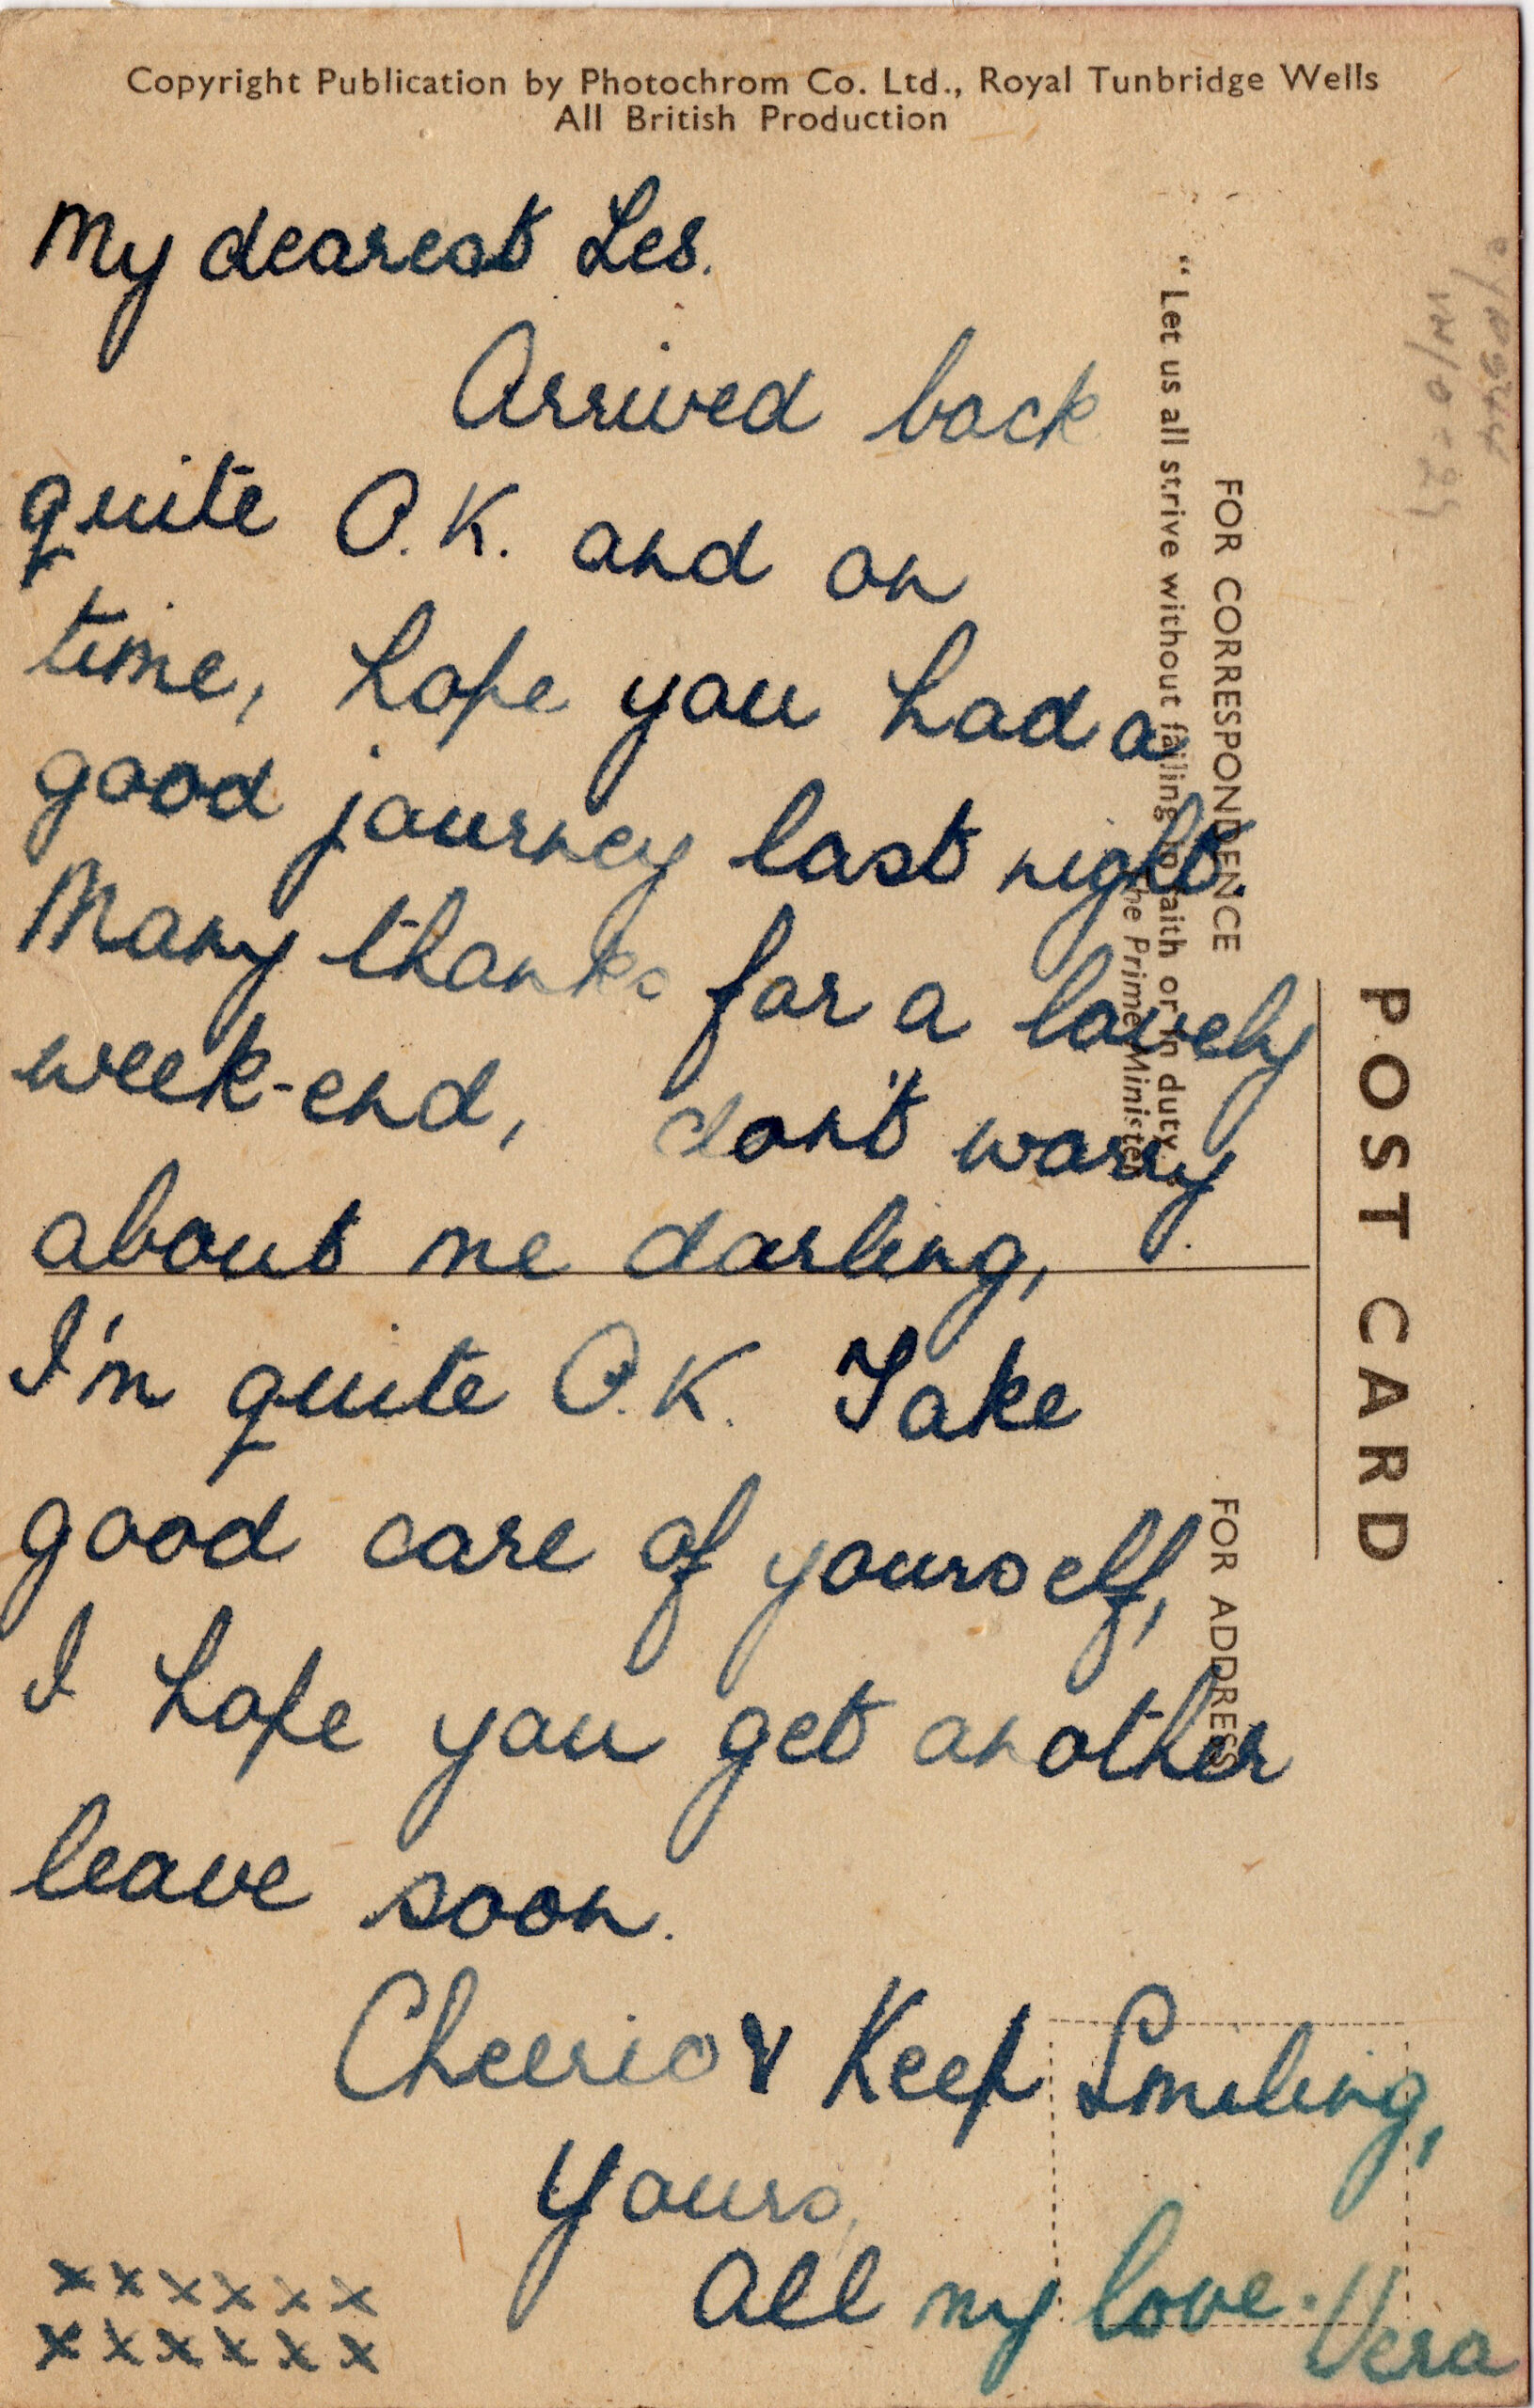 Copyright Publication by Photochrom Co. Ltd., Royal Tunbridge Wells
All British Production
My dearest Les.
Arrived back
quite O.K. and on
time, hope you had a
good journey last night.
Many thanks for a lovely
week-end, don't worry
about me darling,
I'm quite O.K. Take
good care of yourself,
I hope you get another
leave soon.
Cheerio & Keep Smiling,
Yours,
All my love. Vera
x x x x x x
x x x x x x
POST CARD
FOR CORRESPONDENCE
FOR ADDRESS
"Let us all strive without failing in faith or in duty"
The Prime Minister